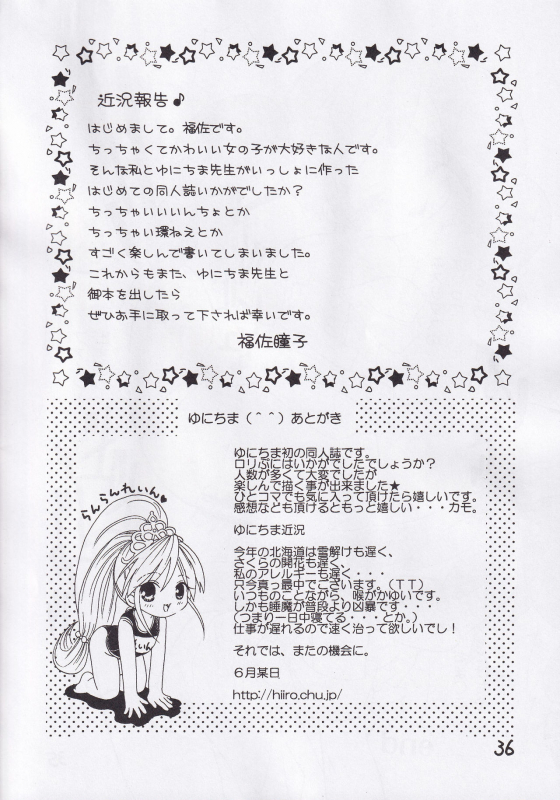 近況報告♪
はじめまして。福佐です。
ちっちゃくてかわいい女の子が大好きな人です。
そんな私とゆにちま先生がいっしょに作った
はじめての同人誌いかがでしたか?
ちっちゃいいいんちょとか
ちっちゃい環ねえとか
すごく楽しんで書いてしまいました。
これからもまた、ゆにちま先生と
御本を出したら
ぜひお手に取って下されば幸いです。
福佐瞳子
ゆにちま(^^)あとがき
ゆにちま初の同人誌です。
ロリぷにはいかがでしたでしょうか?
人数が多くて大変でしたが
楽しんで描く事が出来ました★
ひとコマでも気に入って頂けたら嬉しいです。
感想なども頂けるともっと嬉しい・・・カモ。
ゆにちま近況
今年の北海道は雪解けも遅く、
さくらの開花も遅く、
私のアレルギーも遅く・・・
只今真っ最中でございます。(TT)
いつものことながら、喉がかゆいです。
しかも睡魔が普段より凶暴です・・・
(つまり一日中寝てる・・・とか。)
仕事が遅れるので速く治って欲しいでし!
それでは、またの機会に。
6月某日
http://hiiro.chu.jp/
らんらんれいん♥
れいん
36